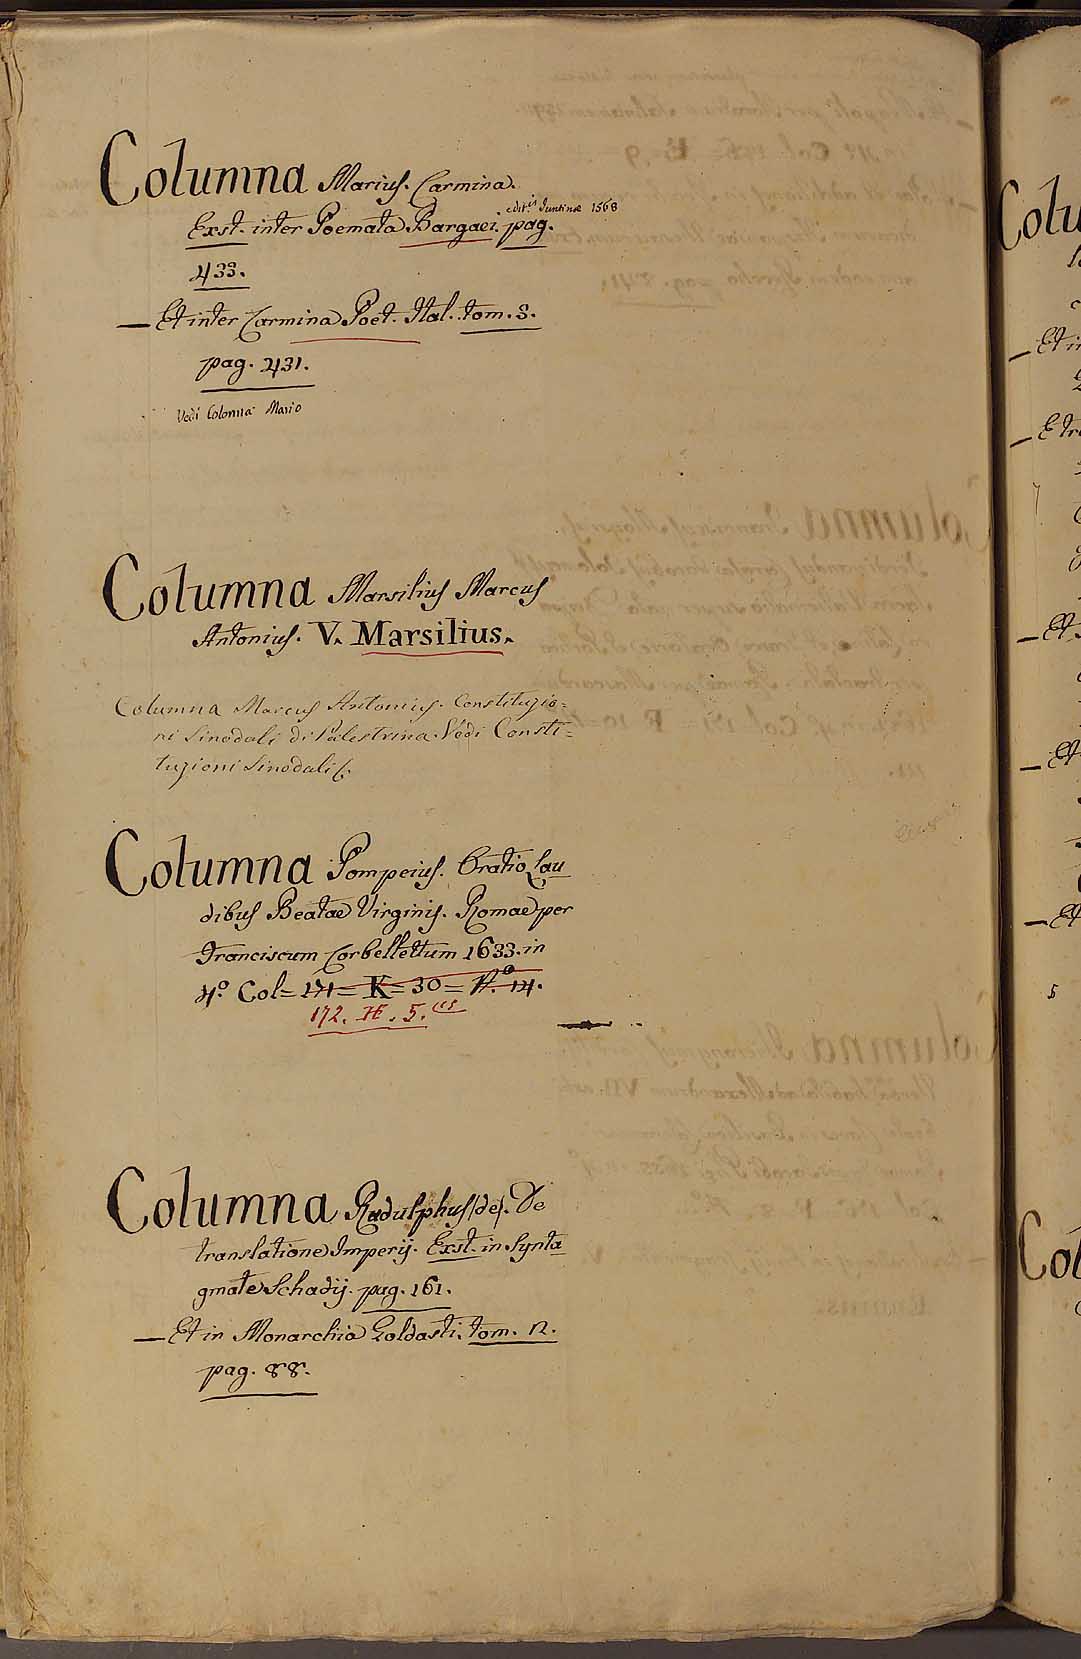 Columna Marius. Carmina.
edit.is Juntinæ 1568
Exst. inter Poemata Bargaei. pag.
433.
— Et inter Carmina Poet. Ital. tom. 3.
pag. 431.
Vedi Colonna Mario
Columna Marsilius Marcus
Antonius. V. Marsilius.
Columna Marcus Antonius. Constituzio=
ni Sinodali di Palestrina. Vedi Consti=
tuzioni Sinodali
Columna Pompeius. Oratio Lau
dibus Beatae Virginis. Romae per
Franciscum Corbellettum 1633. in
4.º Col= 171= K= 30= N.º 14.
172. H. 5.
Columna Radulphus (de). De
translatione Imperij. Exst. in Synta
gmate Schadij. pag. 161.
— Et in Monarchia Goldasti. tom. 2.
pag. 88.
Colu
— Et i
— E tr
— Et
— Et
— Et
5
Col